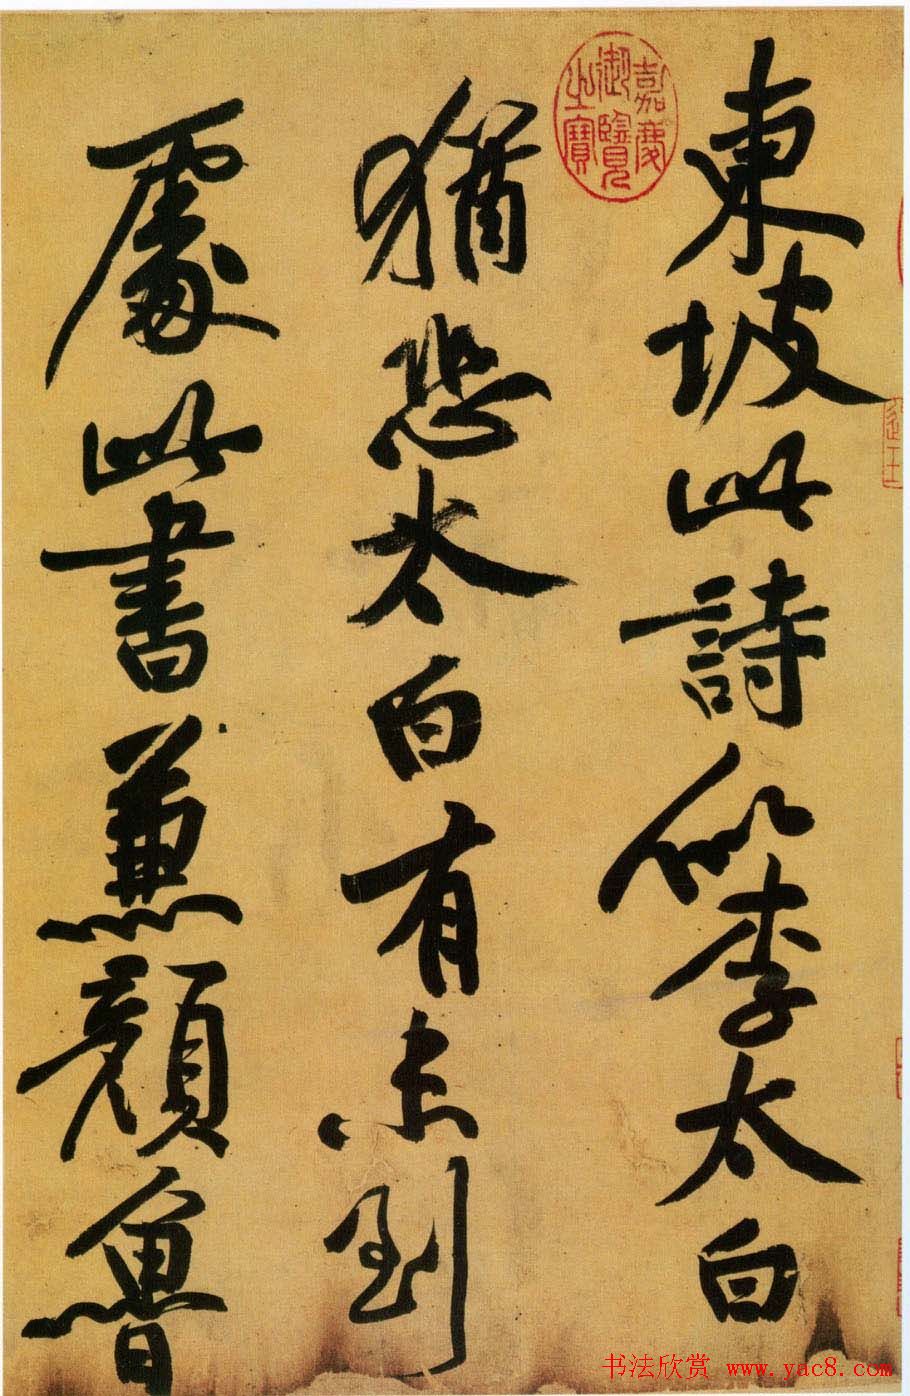 東坡此詩似李太白
猶恐太白有未到
處此書兼顏魯
嘉慶
御覽
之寶
书法欣赏 www.yac8.com